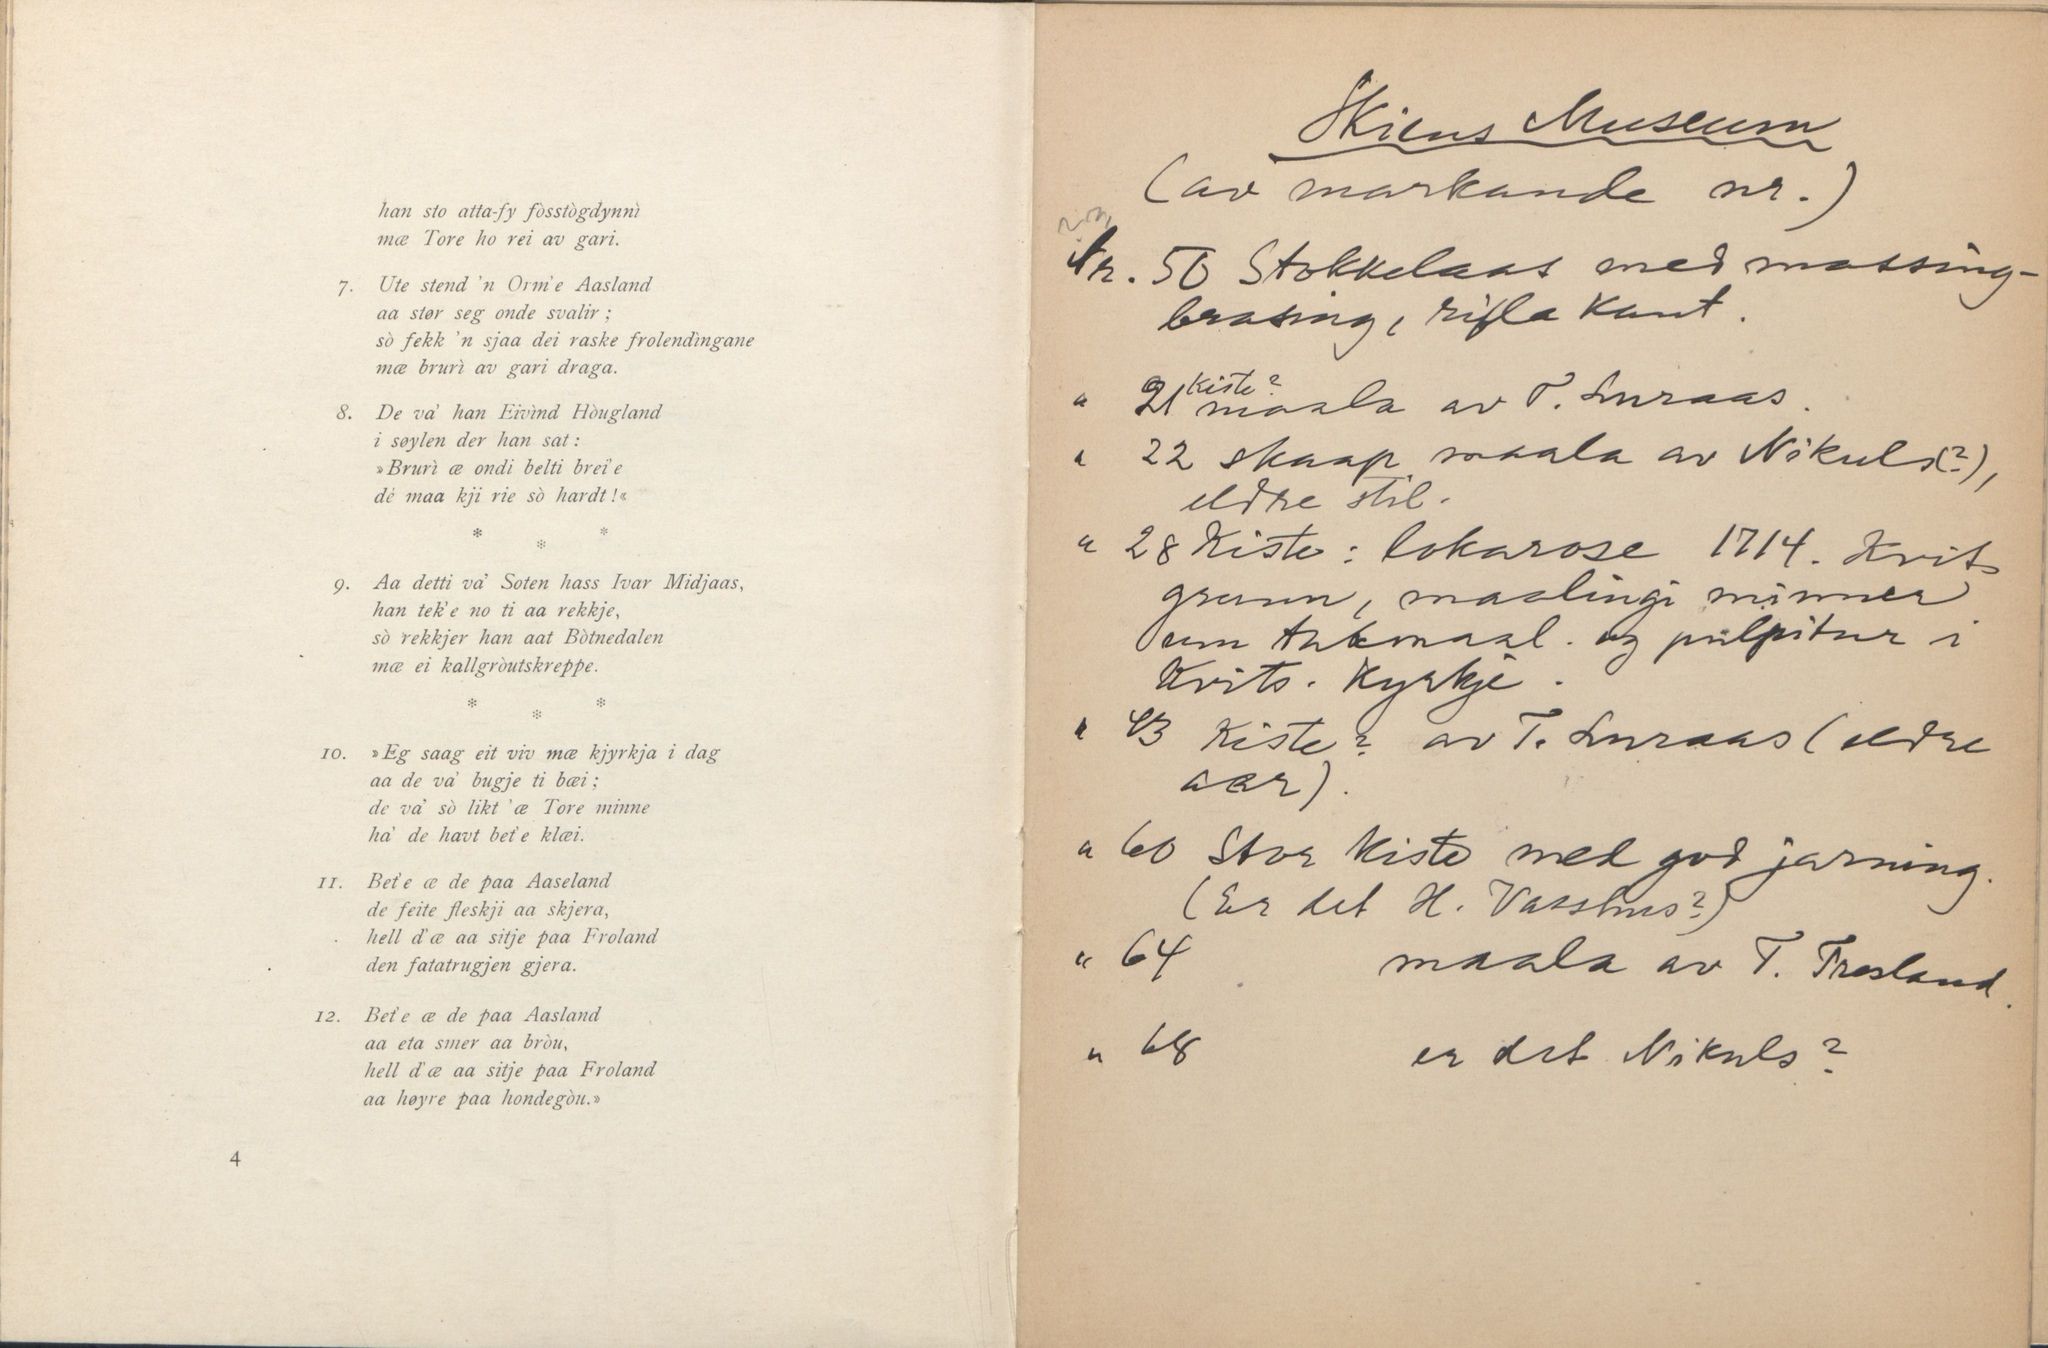 han sto atta-fy fòsstògdynnì
mæ Tore ho rei av gari.
7. Ute stend 'n Orm'e Aasland
aa stør seg onde svalir ;
sò fekk 'n sjaa dei raske frolendìngane
mæ brurì av gari draga.
8. De va' han Eivìnd Hòugland
i søylen der han sat :
»Brurì æ ondi belti brei'e
dé maa kji rie sò hardt !«
* * *
9. Aa detti va' Soten hass Ivar Midjaas,
han tek'e no ti aa rekkje,
sò rekkjer han aat Bòtnedalen
mæ ei kallgròutskreppe.
* * *
10. »Eg saag eit viv mæ kjyrkja i dag
aa de va' bugje ti bæi ;
de va' sò likt 'æ Tore minne
ha' de havt bet'e klæi.
11. Bet'e æ de paa Aaseland
de feite fleskji aa skjera,
hell d'æ aa sitje paa Froland
den fatatrugjen gjera.
12. Bet'e æ de paa Aasland
aa eta smer aa bròu,
hell d'æ aa sitje paa Froland
aa høyre paa hondegòu.»
4
Skiens Museum
(av markande nr.)
Nr. 50 Stokkelaas med massing-
brasing, rifla kant.
" 21 kiste? maala av T. Luraas.
" 22 skaap maala av Nikuls(?),
eldre stil.
" 28 Kiste : lokarose 1714. Kvits
grunn, maalingi minner
um takmaal. og pulpitur i
Kvits. Kyrkje.
" 43 Kiste? av T. Luraas (eldre
aar).
" 60 Stor kiste med god jarning.
(Er det H. Vasshus?)
" 64 maala av T. Træsland.
" 68 er det Nikuls?